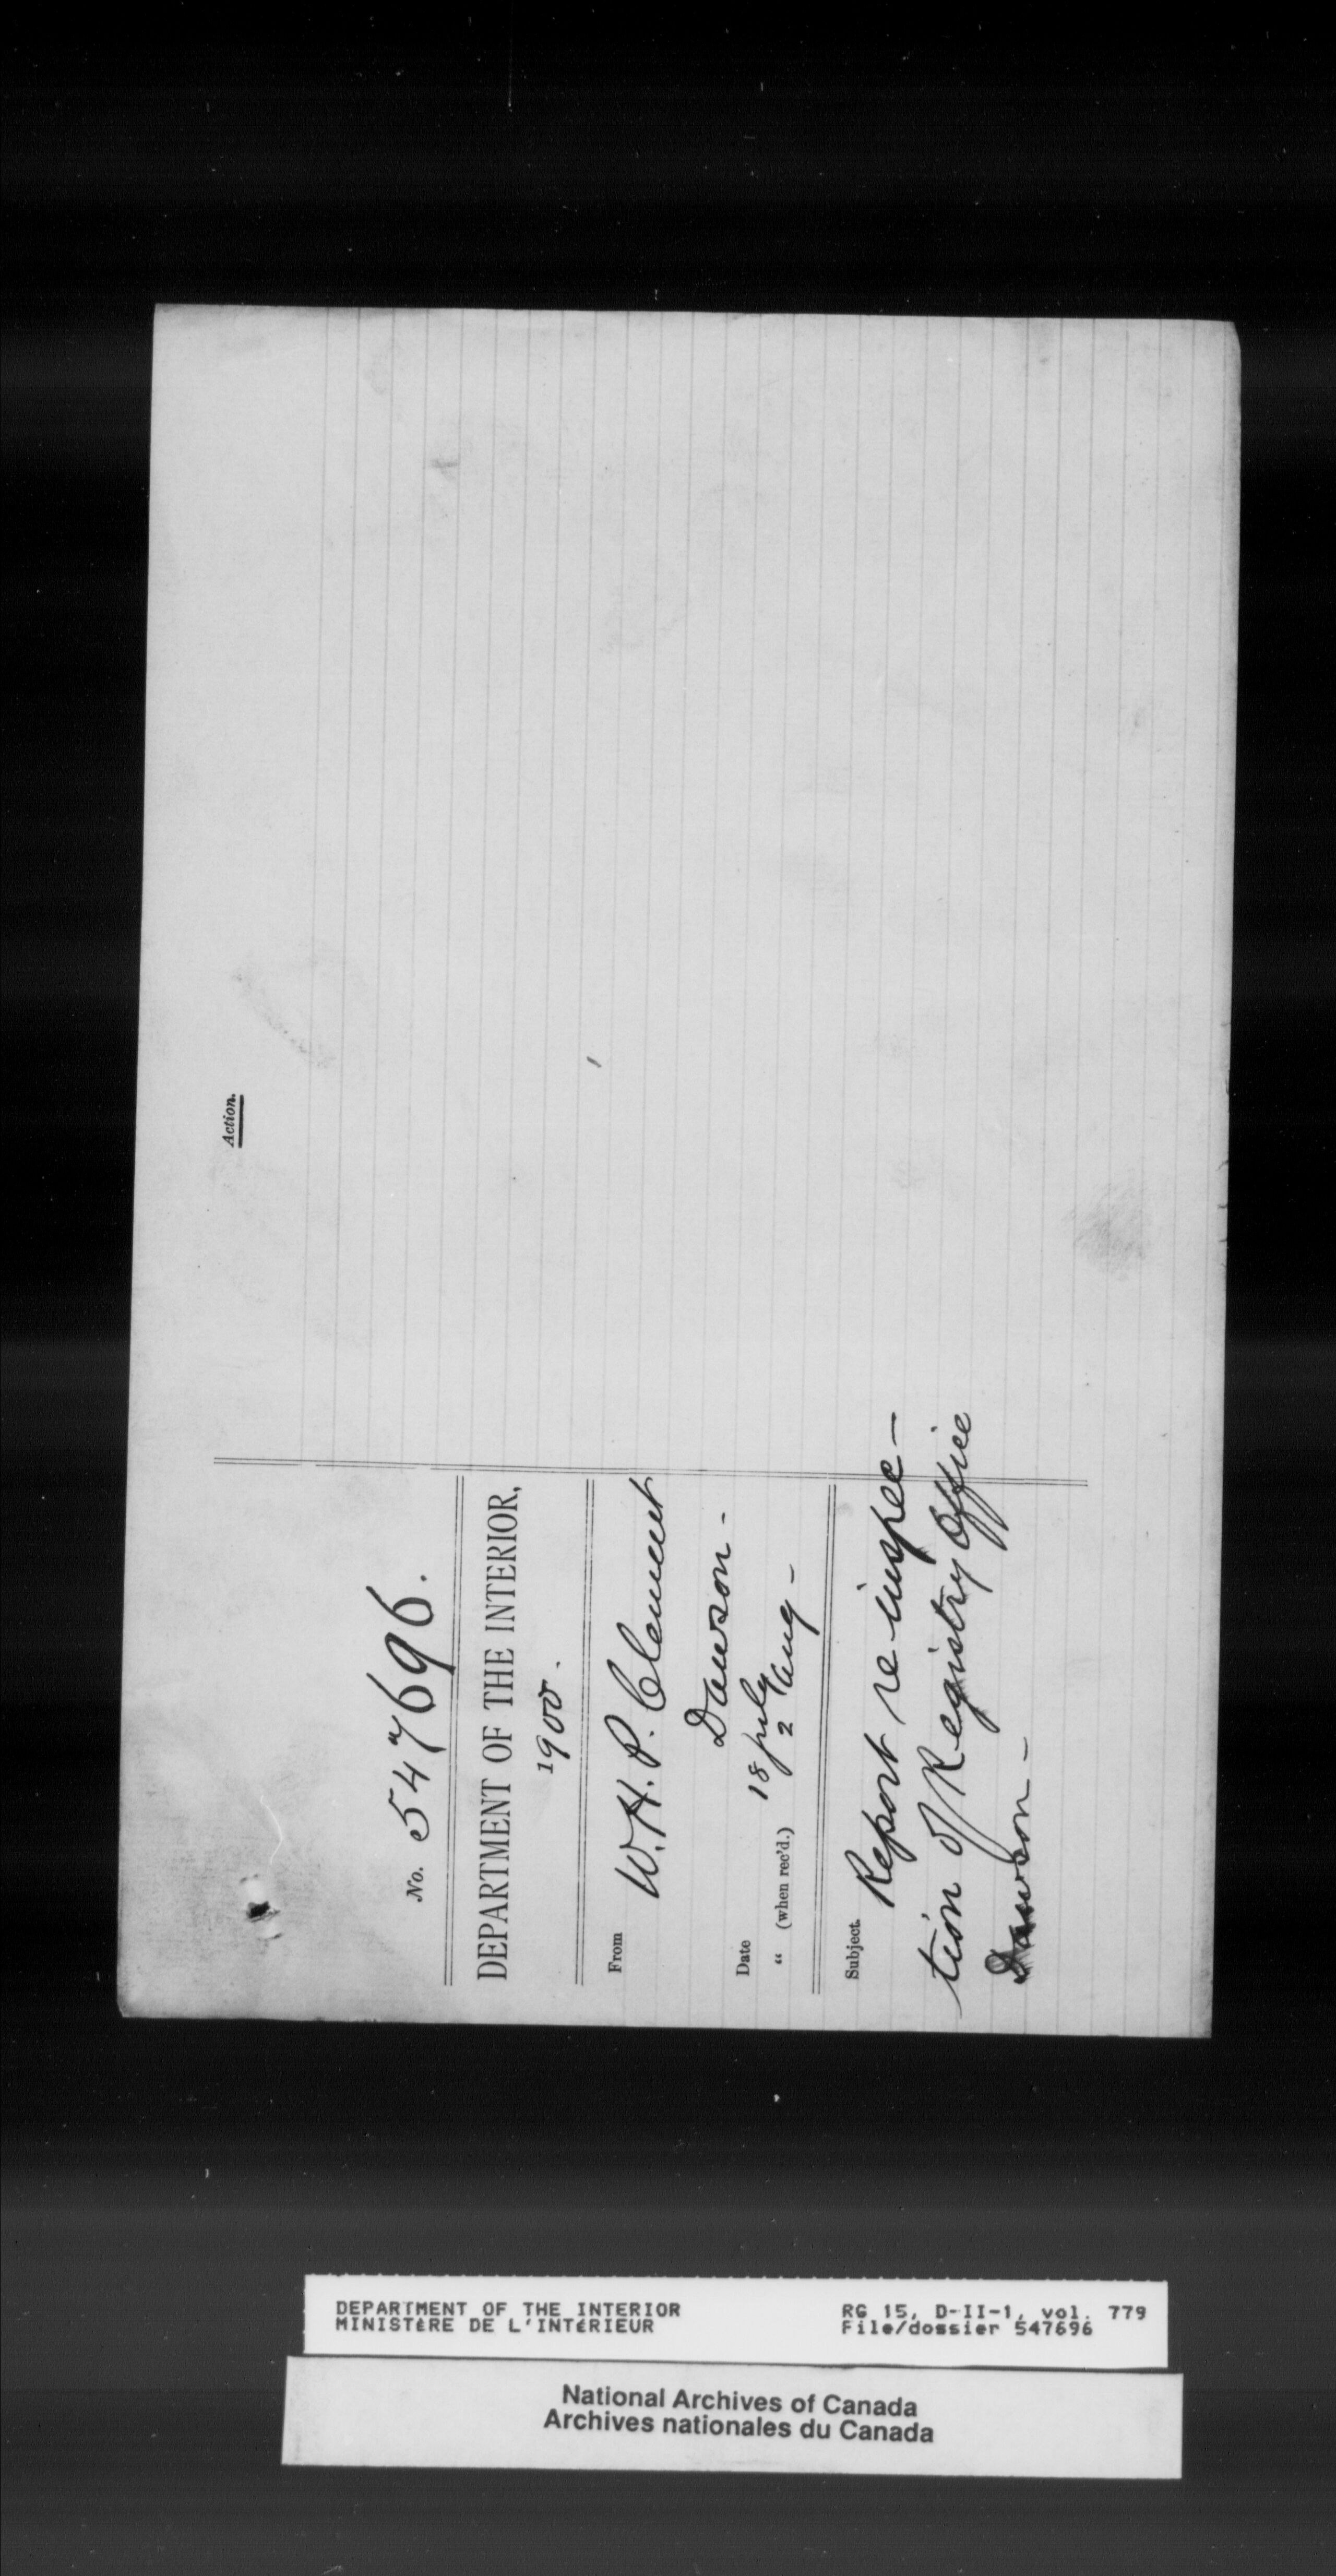 No. 547696.
DEPARTMENT OF THE INTERIOR,
1900.
From W. H. P. Clement
Dawson -
Date 18 July
" (when rec'd.) 2 Aug -
Subject. Report re inspec-
tion of Registry Office
Dawson -
Action.
DEPARTMENT OF THE INTERIOR
MINISTÈRE DE L'INTÉRIEUR
RG 15, D-II-1, vol. 779
File/dossier 547696
National Archives of Canada
Archives nationales du Canada